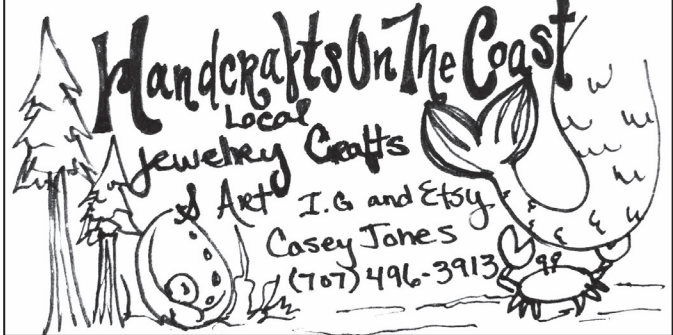 HandcraftsOnTheCoast
Local
Jewelry Crafts
& Art I.G and Etsy
Casey Jones
(707) 496-3913